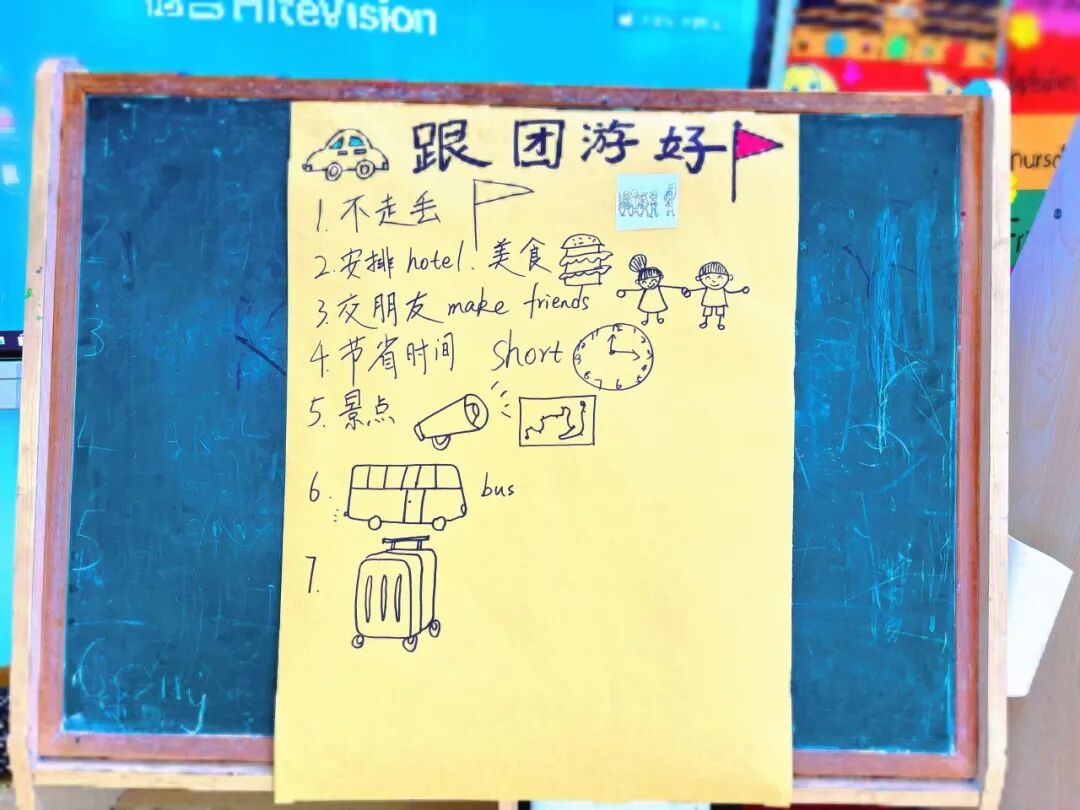 HiteVision
跟团游好
1. 不走丢
2. 安排 hotel. 美食
3. 交朋友 make friends
4. 节省时间 short
5. 景点
6. bus
7.